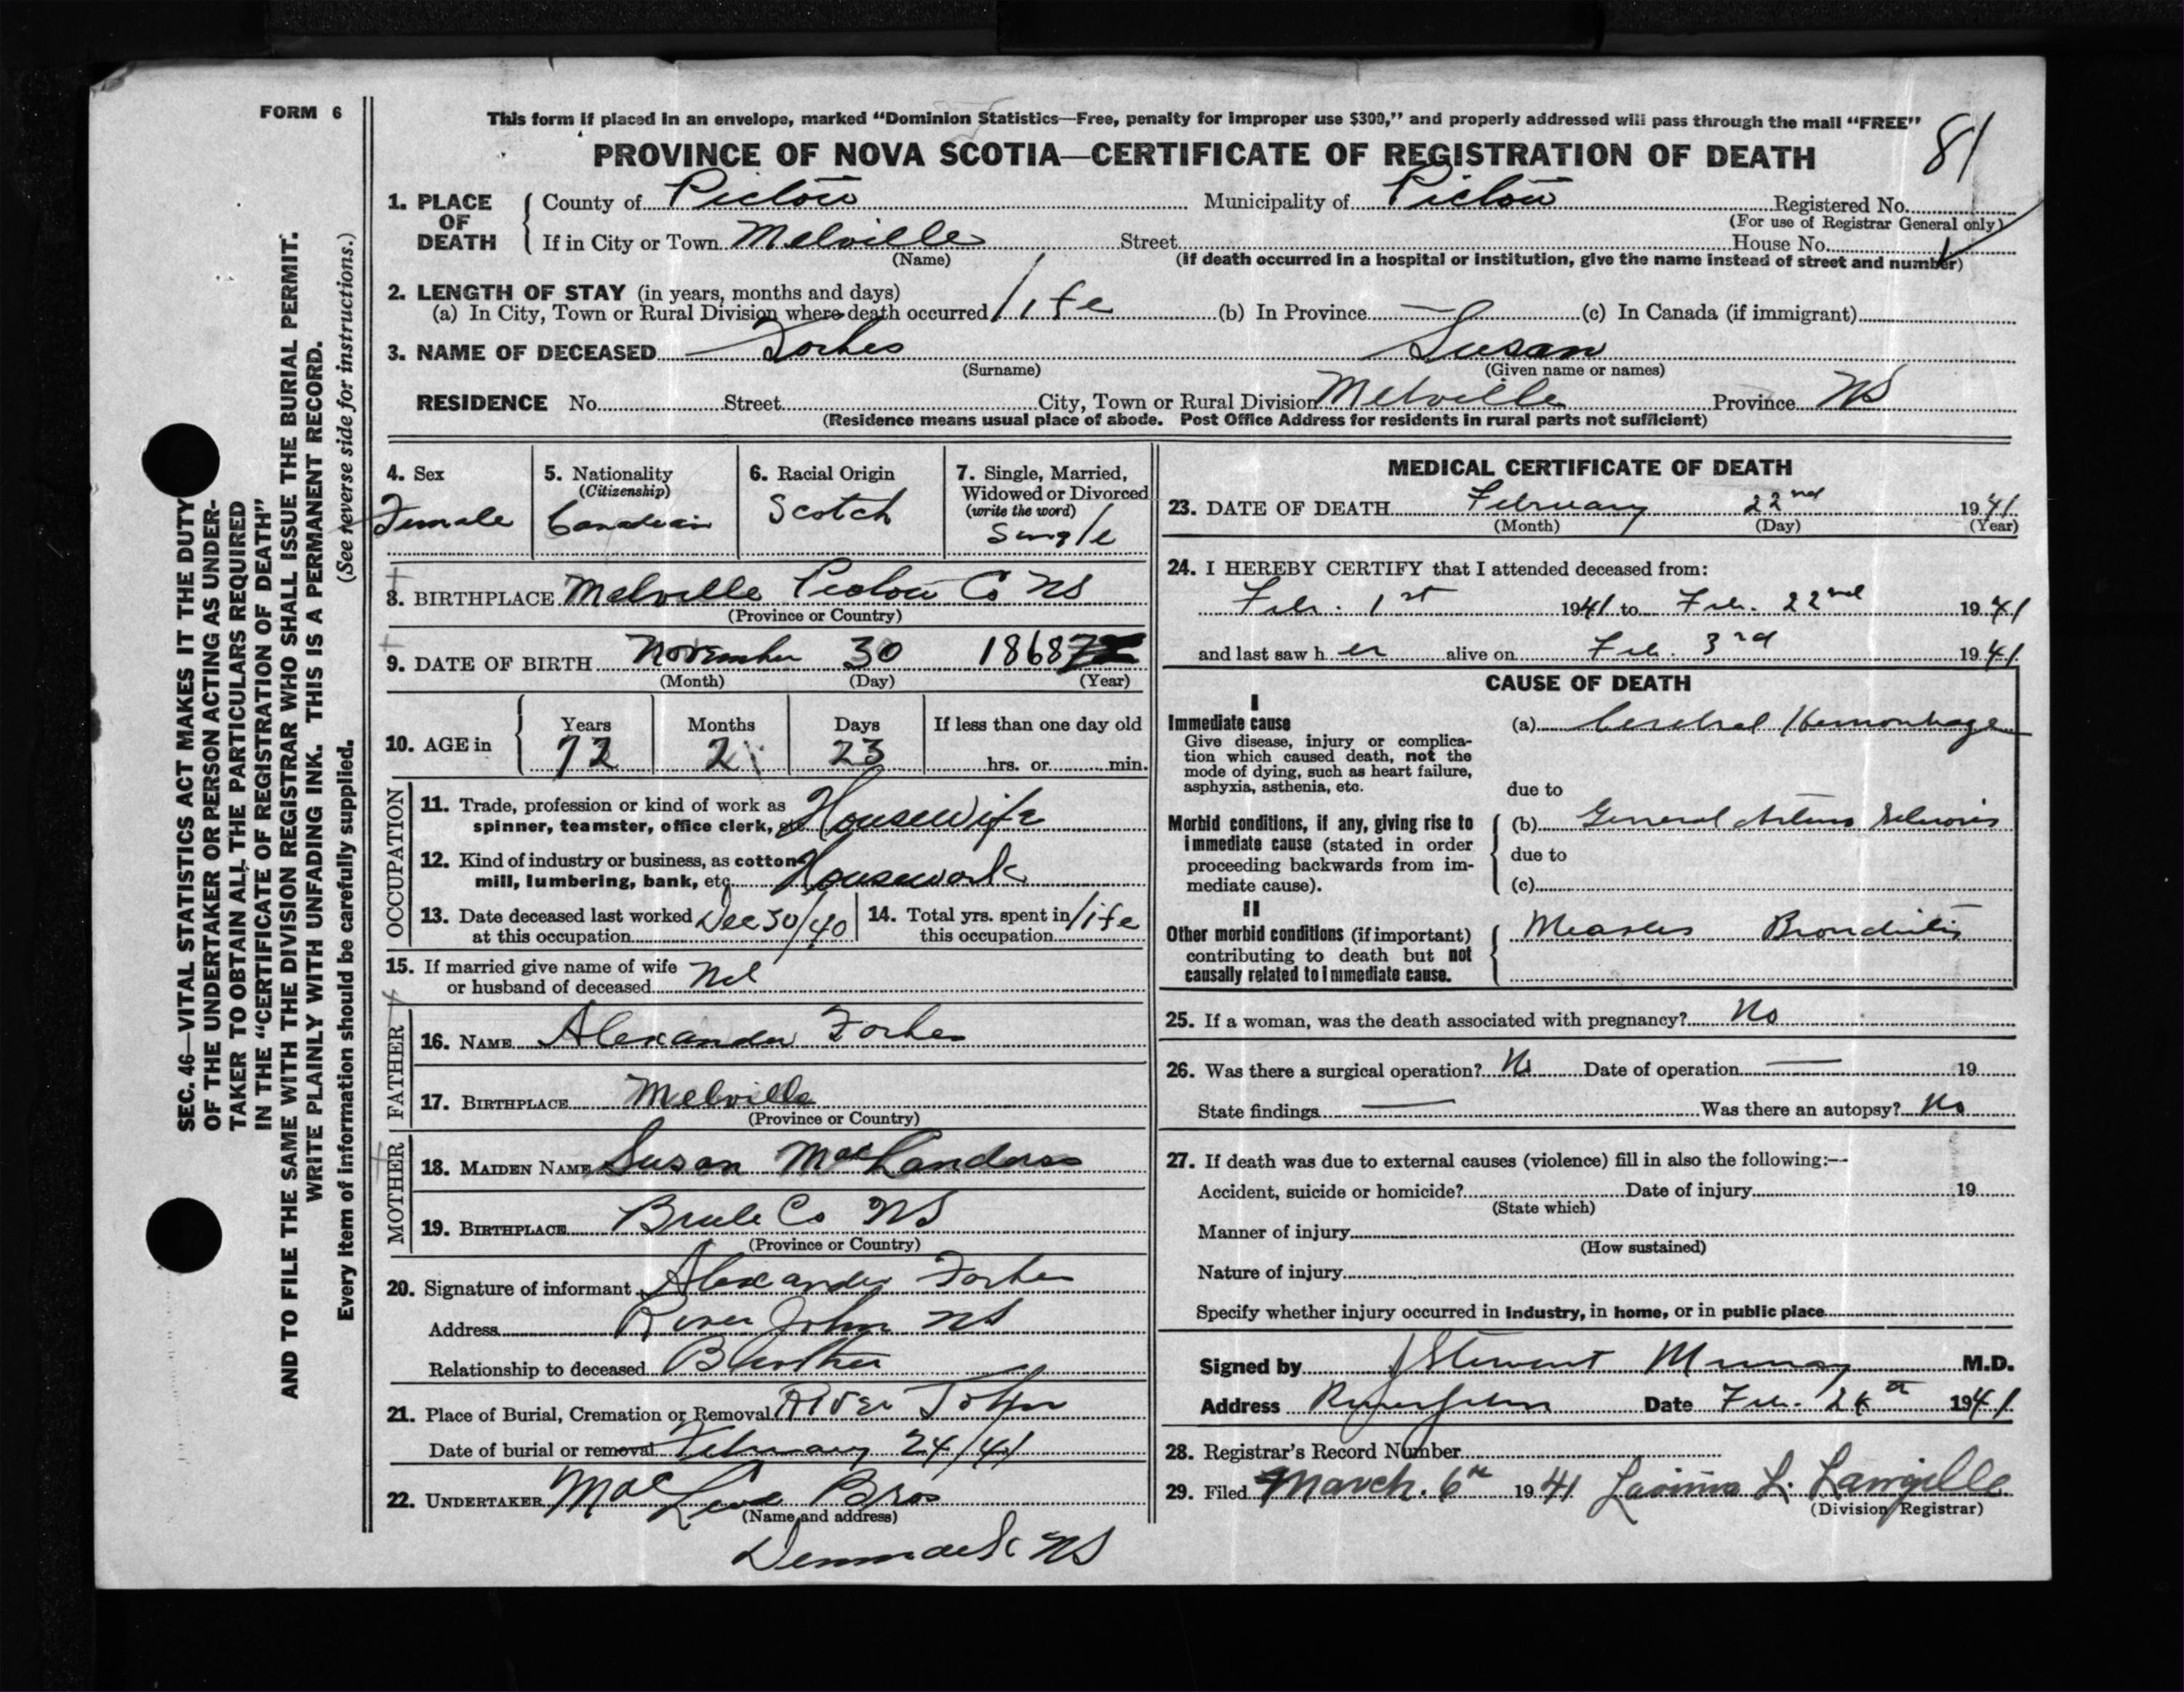 FORM 6
This form if placed in an envelope, marked "Dominion Statistics—Free, penalty for improper use $300," and properly addressed will pass through the mail "FREE"
81
PROVINCE OF NOVA SCOTIA—CERTIFICATE OF REGISTRATION OF DEATH
1. PLACE OF DEATH County of Pictou Municipality of Pictou Registered No.
(For use of Registrar General only)
If in City or Town Melville Street House No.
(Name) (If death occurred in a hospital or institution, give the name instead of street and number)
2. LENGTH OF STAY (in years, months and days)
(a) In City, Town or Rural Division where death occurred life (b) In Province — (c) In Canada (if immigrant)
3. NAME OF DECEASED Forbes Susan
(Surname) (Given name or names)
RESIDENCE No. Street City, Town or Rural Division Melville Province NS
(Residence means usual place of abode. Post Office Address for residents in rural parts not sufficient)
4. Sex
Female
5. Nationality
(Citizenship)
Canadian
6. Racial Origin
Scotch
7. Single, Married,
Widowed or Divorced
(write the word)
Single
8. BIRTHPLACE Melville Pictou Co NS
(Province or Country)
9. DATE OF BIRTH November 30 1868
(Month) (Day) (Year)
10. AGE in Years Months Days If less than one day old
72 2 23 hrs. or min.
OCCUPATION
11. Trade, profession or kind of work as
spinner, teamster, office clerk, etc. Housewife
12. Kind of industry or business, as cotton
mill, lumbering, bank, etc. Housework
13. Date deceased last worked
at this occupation Dec 30/40
14. Total yrs. spent in
this occupation life
15. If married give name of wife
or husband of deceased Nil
FATHER
16. NAME Alexander Forbes
17. BIRTHPLACE Melville
(Province or Country)
MOTHER
18. MAIDEN NAME Susan
19. BIRTHPLACE Brule Co NS
(Province or Country)
20. Signature of informant Alexander Forbes
Address River John NS
Relationship to deceased Brother
21. Place of Burial, Cremation or Removal River John
Date of burial or removal February 24/41
22. UNDERTAKER Bros
(Name and address)
Denmark NS
MEDICAL CERTIFICATE OF DEATH
23. DATE OF DEATH February 22nd 1941
(Month) (Day) (Year)
24. I HEREBY CERTIFY that I attended deceased from:
Feb. 1st 1941 to Feb. 22nd 1941
and last saw her alive on Feb. 3rd 1941
CAUSE OF DEATH
I
Immediate cause
Give disease, injury or complica-
tion which caused death, not the
mode of dying, such as heart failure,
asphyxia, asthenia, etc.
(a) Cerebral Hemorrhage
due to
Morbid conditions, if any, giving rise to
immediate cause (stated in order
proceeding backwards from im-
mediate cause).
(b) General Arterio Sclerosis
due to
(c)
II
Other morbid conditions (if important)
contributing to death but not
causally related to immediate cause.
Measles Bronchitis
25. If a woman, was the death associated with pregnancy? No
26. Was there a surgical operation? No Date of operation — 19
State findings — Was there an autopsy? No
27. If death was due to external causes (violence) fill in also the following:—
Accident, suicide or homicide? Date of injury 19
(State which)
Manner of injury
(How sustained)
Nature of injury
Specify whether injury occurred in industry, in home, or in public place
Signed by J Stewart Murray M.D.
Address River John Date Feb. 1941
28. Registrar's Record Number
29. Filed March. 6th 1941 L. Langille
(Division Registrar)
SEC. 46—VITAL STATISTICS ACT MAKES IT THE DUTY
OF THE UNDERTAKER OR PERSON ACTING AS UNDER-
TAKER TO OBTAIN ALL THE PARTICULARS REQUIRED
IN THE "CERTIFICATE OF REGISTRATION OF DEATH"
AND TO FILE THE SAME WITH THE DIVISION REGISTRAR WHO SHALL ISSUE THE BURIAL PERMIT.
WRITE PLAINLY WITH UNFADING INK. THIS IS A PERMANENT RECORD.
Every item of information should be carefully supplied. (See reverse side for instructions.)